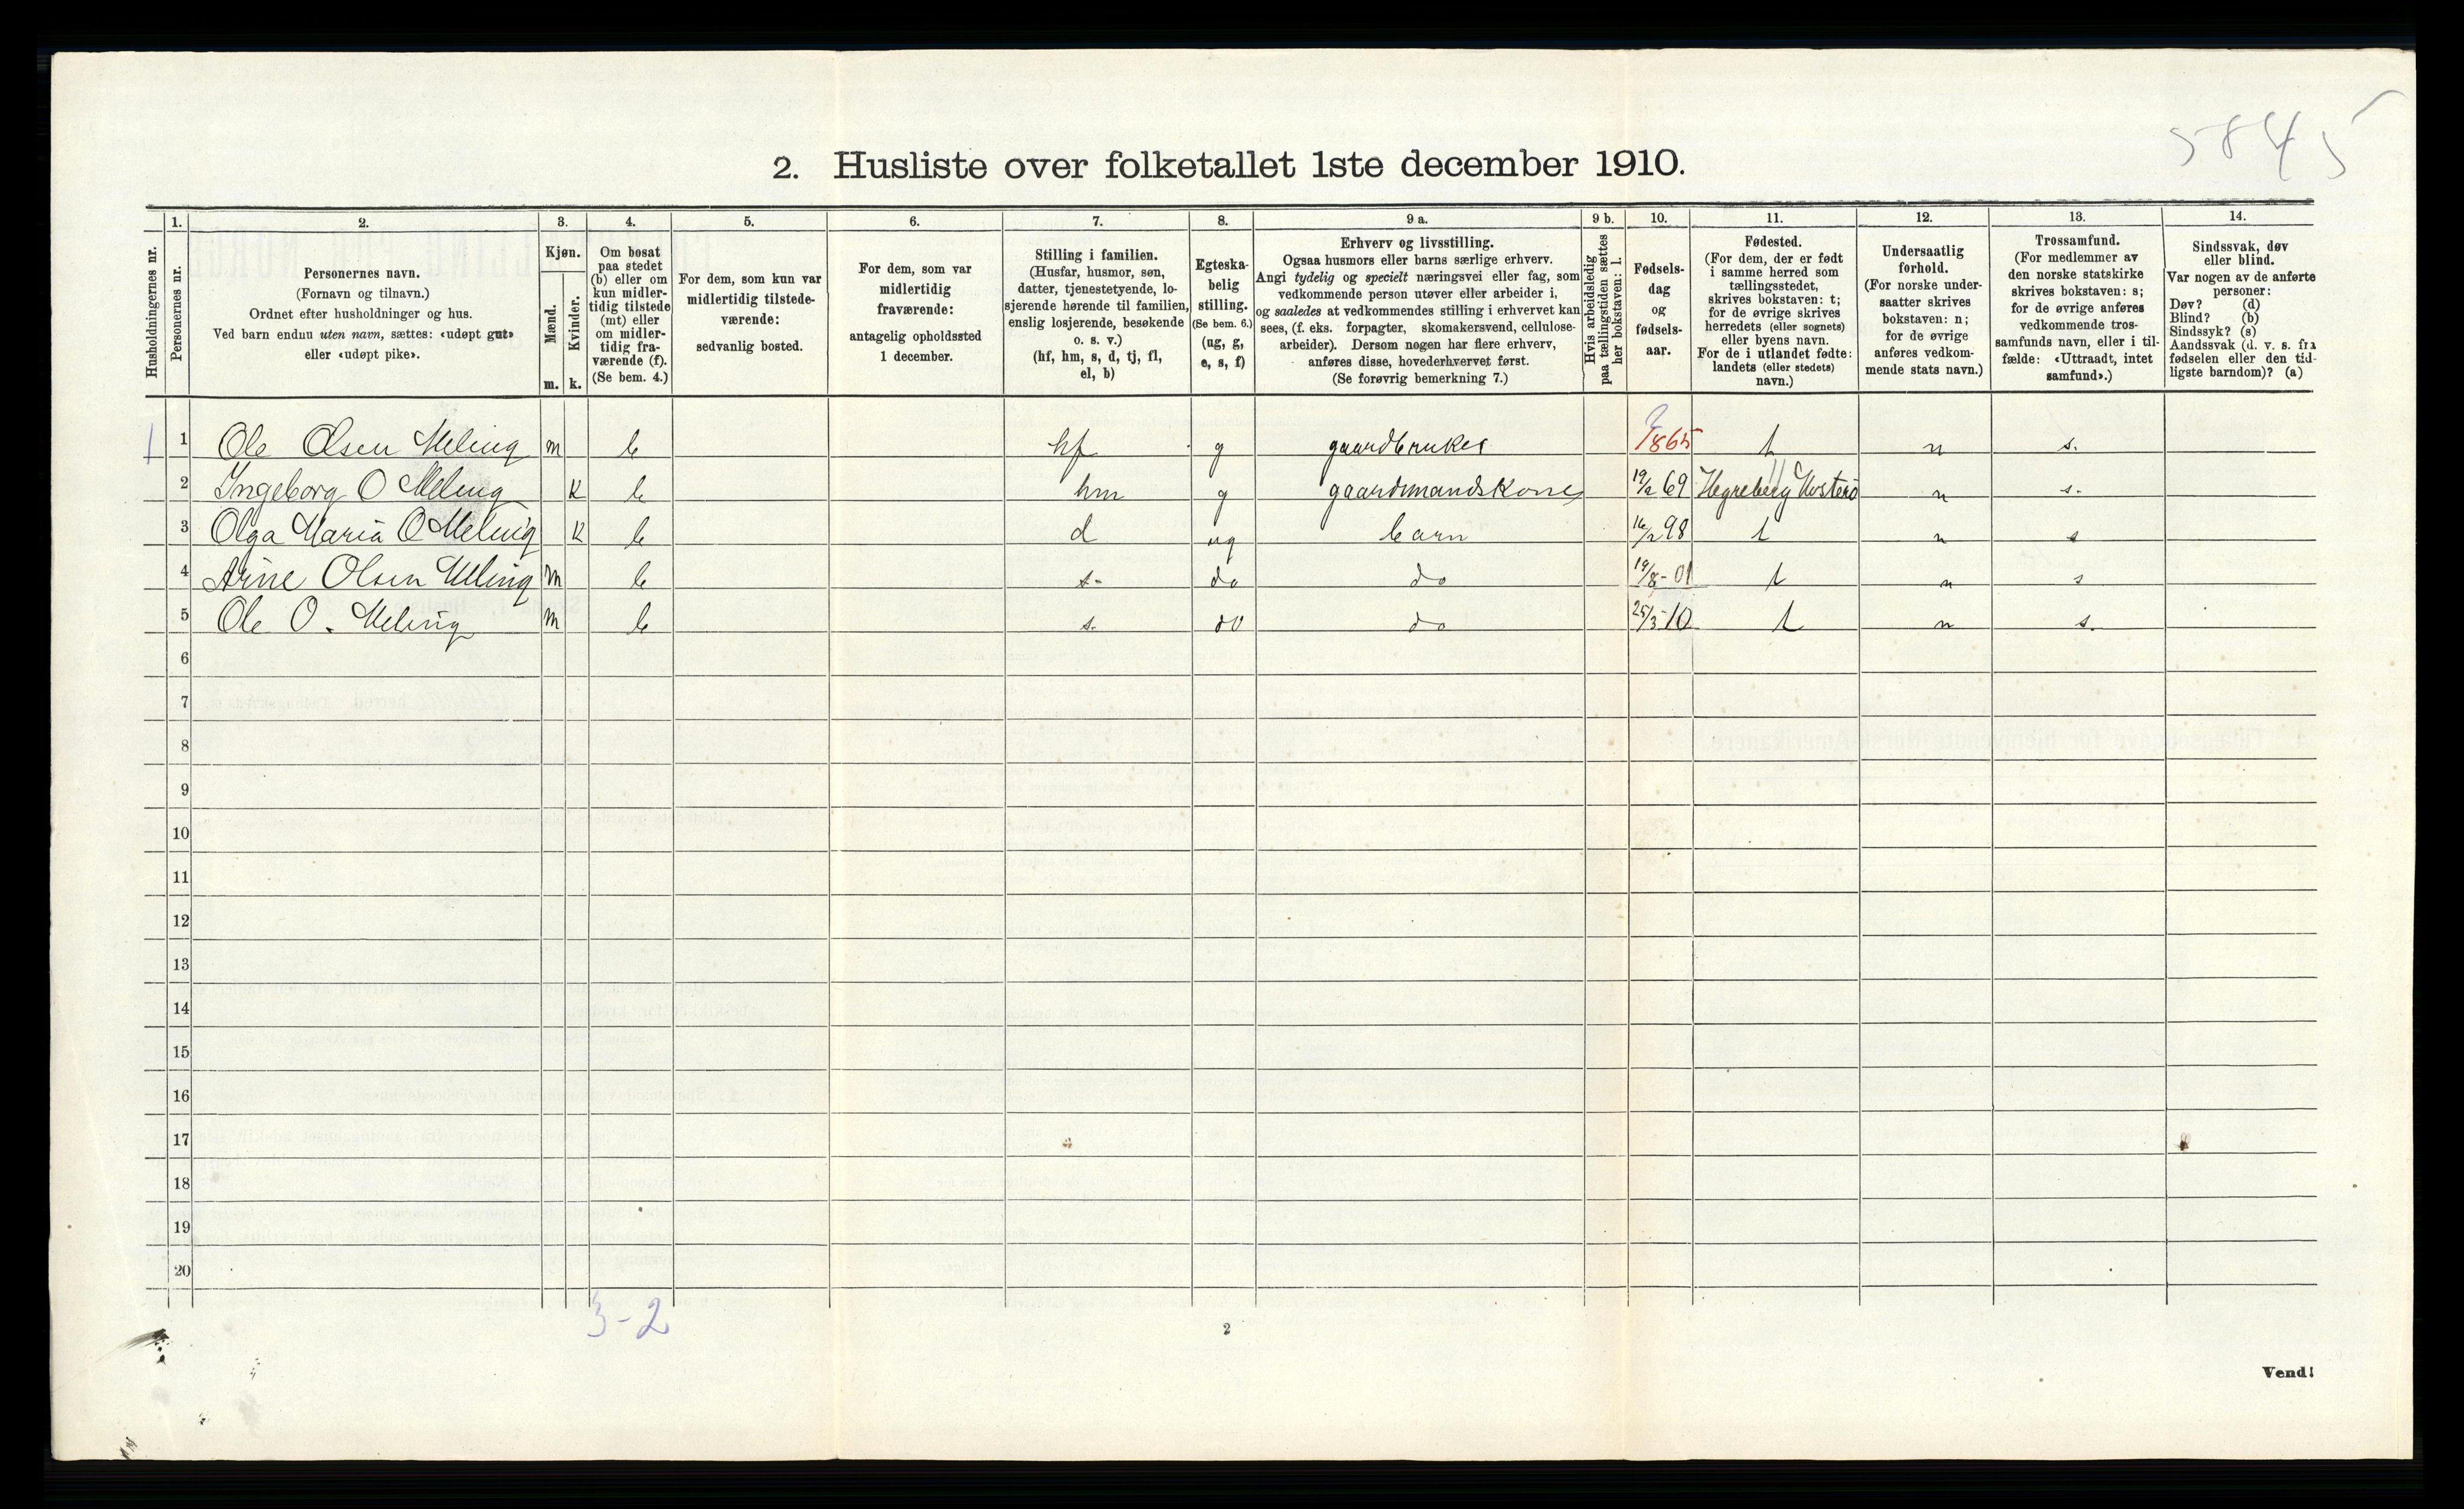 5845
2. Husliste over folketallet 1ste december 1910.
Husholdningernes nr.
1.
Personernes nr.
2.
Personernes navn.
(Fornavn og tilnavn.)
Ordnet efter husholdninger og hus.
Ved barn endnu uten navn, sættes: «udøpt gut»
eller «udøpt pike».
3.
Kjøn.
Mænd.
Kvinder.
m. k.
4.
Om bosat
paa stedet
(b) eller om
kun midler-
tidig tilstede
(mt) eller
om midler-
tidig fra-
værende (f).
(Se bem. 4.)
5.
For dem, som kun var
midlertidig tilstede-
værende:
sedvanlig bosted.
6.
For dem, som var
midlertidig
fraværende:
antagelig opholdssted
1 december.
7.
Stilling i familien.
(Husfar, husmor, søn,
datter, tjenestetyende, lo-
sjerende hørende til familien,
enslig losjerende, besøkende
o. s. v.)
(hf, hm, s, d, tj, fl,
el, b)
8.
Egteska-
belig
stilling.
(Se bem. 6.)
(ug, g,
e, s, f)
9 a.
Erhverv og livsstilling.
Ogsaa husmors eller barns særlige erhverv.
Angi tydelig og specielt næringsvei eller fag, som
vedkommende person utøver eller arbeider i,
og saaledes at vedkommendes stilling i erhvervet kan
sees, (f. eks. forpagter, skomakersvend, cellulose-
arbeider). Dersom nogen har flere erhverv,
anføres disse, hovederhvervet først.
(Se forøvrig bemerkning 7.)
9 b.
Hvis arbeidsledig
paa tællingstiden sættes
her bokstaven: l.
10.
Fødsels-
dag
og
fødsels-
aar.
11.
Fødested.
(For dem, der er født
i samme herred som
tællingsstedet,
skrives bokstaven: t;
for de øvrige skrives
herredets (eller sognets)
eller byens navn.
For de i utlandet fødte:
landets (eller stedets)
navn.)
12.
Undersaatlig
forhold.
(For norske under-
saatter skrives
bokstaven: n;
for de øvrige
anføres vedkom-
mende stats navn.)
13.
Trossamfund.
(For medlemmer av
den norske statskirke
skrives bokstaven: s;
for de øvrige anføres
vedkommende tros-
samfunds navn, eller i til-
fælde: «Uttraadt, intet
samfund».)
14.
Sindssvak, døv
eller blind.
Var nogen av de anførte
personer:
Døv? (d)
Blind? (b)
Sindssyk? (s)
Aandssvak (d. v. s. fra
fødselen eller den tid-
ligste barndom)? (a)
1 1 Ole Olsen Meling m b hf g gaardbruker 1865 t n s.
2 Ingeborg O Meling K b hm g gaardmandskone 19/2 69 Hegreberg Mosterö n s.
3 Olga Maria O Meling K b d ug barn 16/2 98 t n s
4 Arne Olsen Meling m b s. do do 19/8-01 t n s
5 Ole O. Meling m b s. do do 25/3-10 t n s.
6
7
8
9
10
11
12
13
14
15
16
17
18
19
20
3-2
2
Vend!